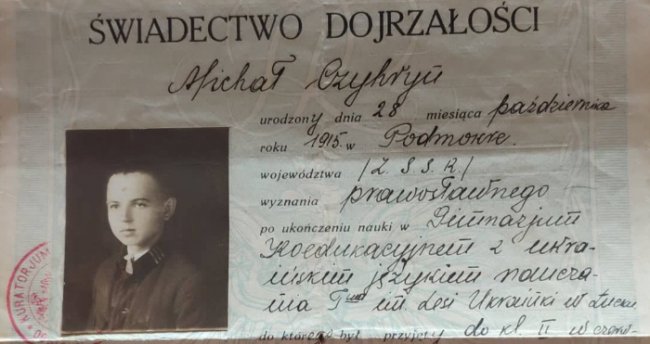 ŚWIADECTWO DOJRZAŁOŚCI
Michał Czykryn
urodzony dnia 28 miesiąca października
roku 1915 w Podmokre.
województwa /Z. S. S. R./
wyznania prawosławnego
po ukończeniu nauki w Gimnazjum
Koedukacyjnem z ukra-
ińskim językiem naucza-
nia Twa im. Lesi Ukrainki w Łucku
do którego był przyjęty do kl. II w czerw-
KURATORJUM